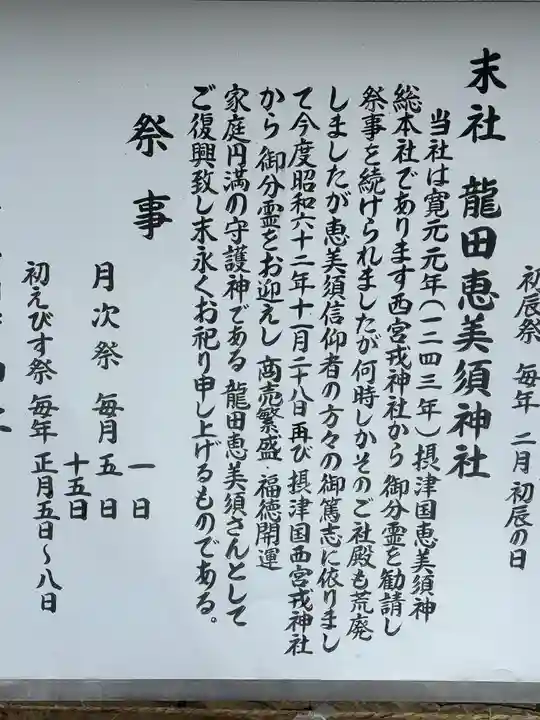 初辰祭 毎年 二月 初辰の日
末社 龍田恵美須神社
当社は寛元元年(一二四三年)摂津国恵美須神
総本社であります西宮戎神社から 御分霊を勧請し
祭事を続けられましたが何時しかそのご社殿も荒廃
しましたが恵美須信仰者の方々の御篤志に依りまし
て今度昭和六十二年十一月二十八日再び 摂津国西宮戎神社
から 御分霊をお迎えし 商売繁盛・福徳開運
家庭円満の守護神である 龍田恵美須さんとして
ご復興致し末永くお祀り申し上げるものである。
祭事
一日
月次祭 毎月 五日
十五日
初えびす祭 毎年 正月五日〜八日